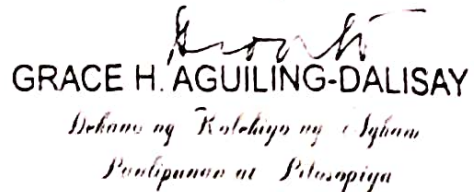 GRACE H. AGUILING-DALISAY
Dekano ng Kolehiyo ng Agham
Panlipunan at Pilosopiya